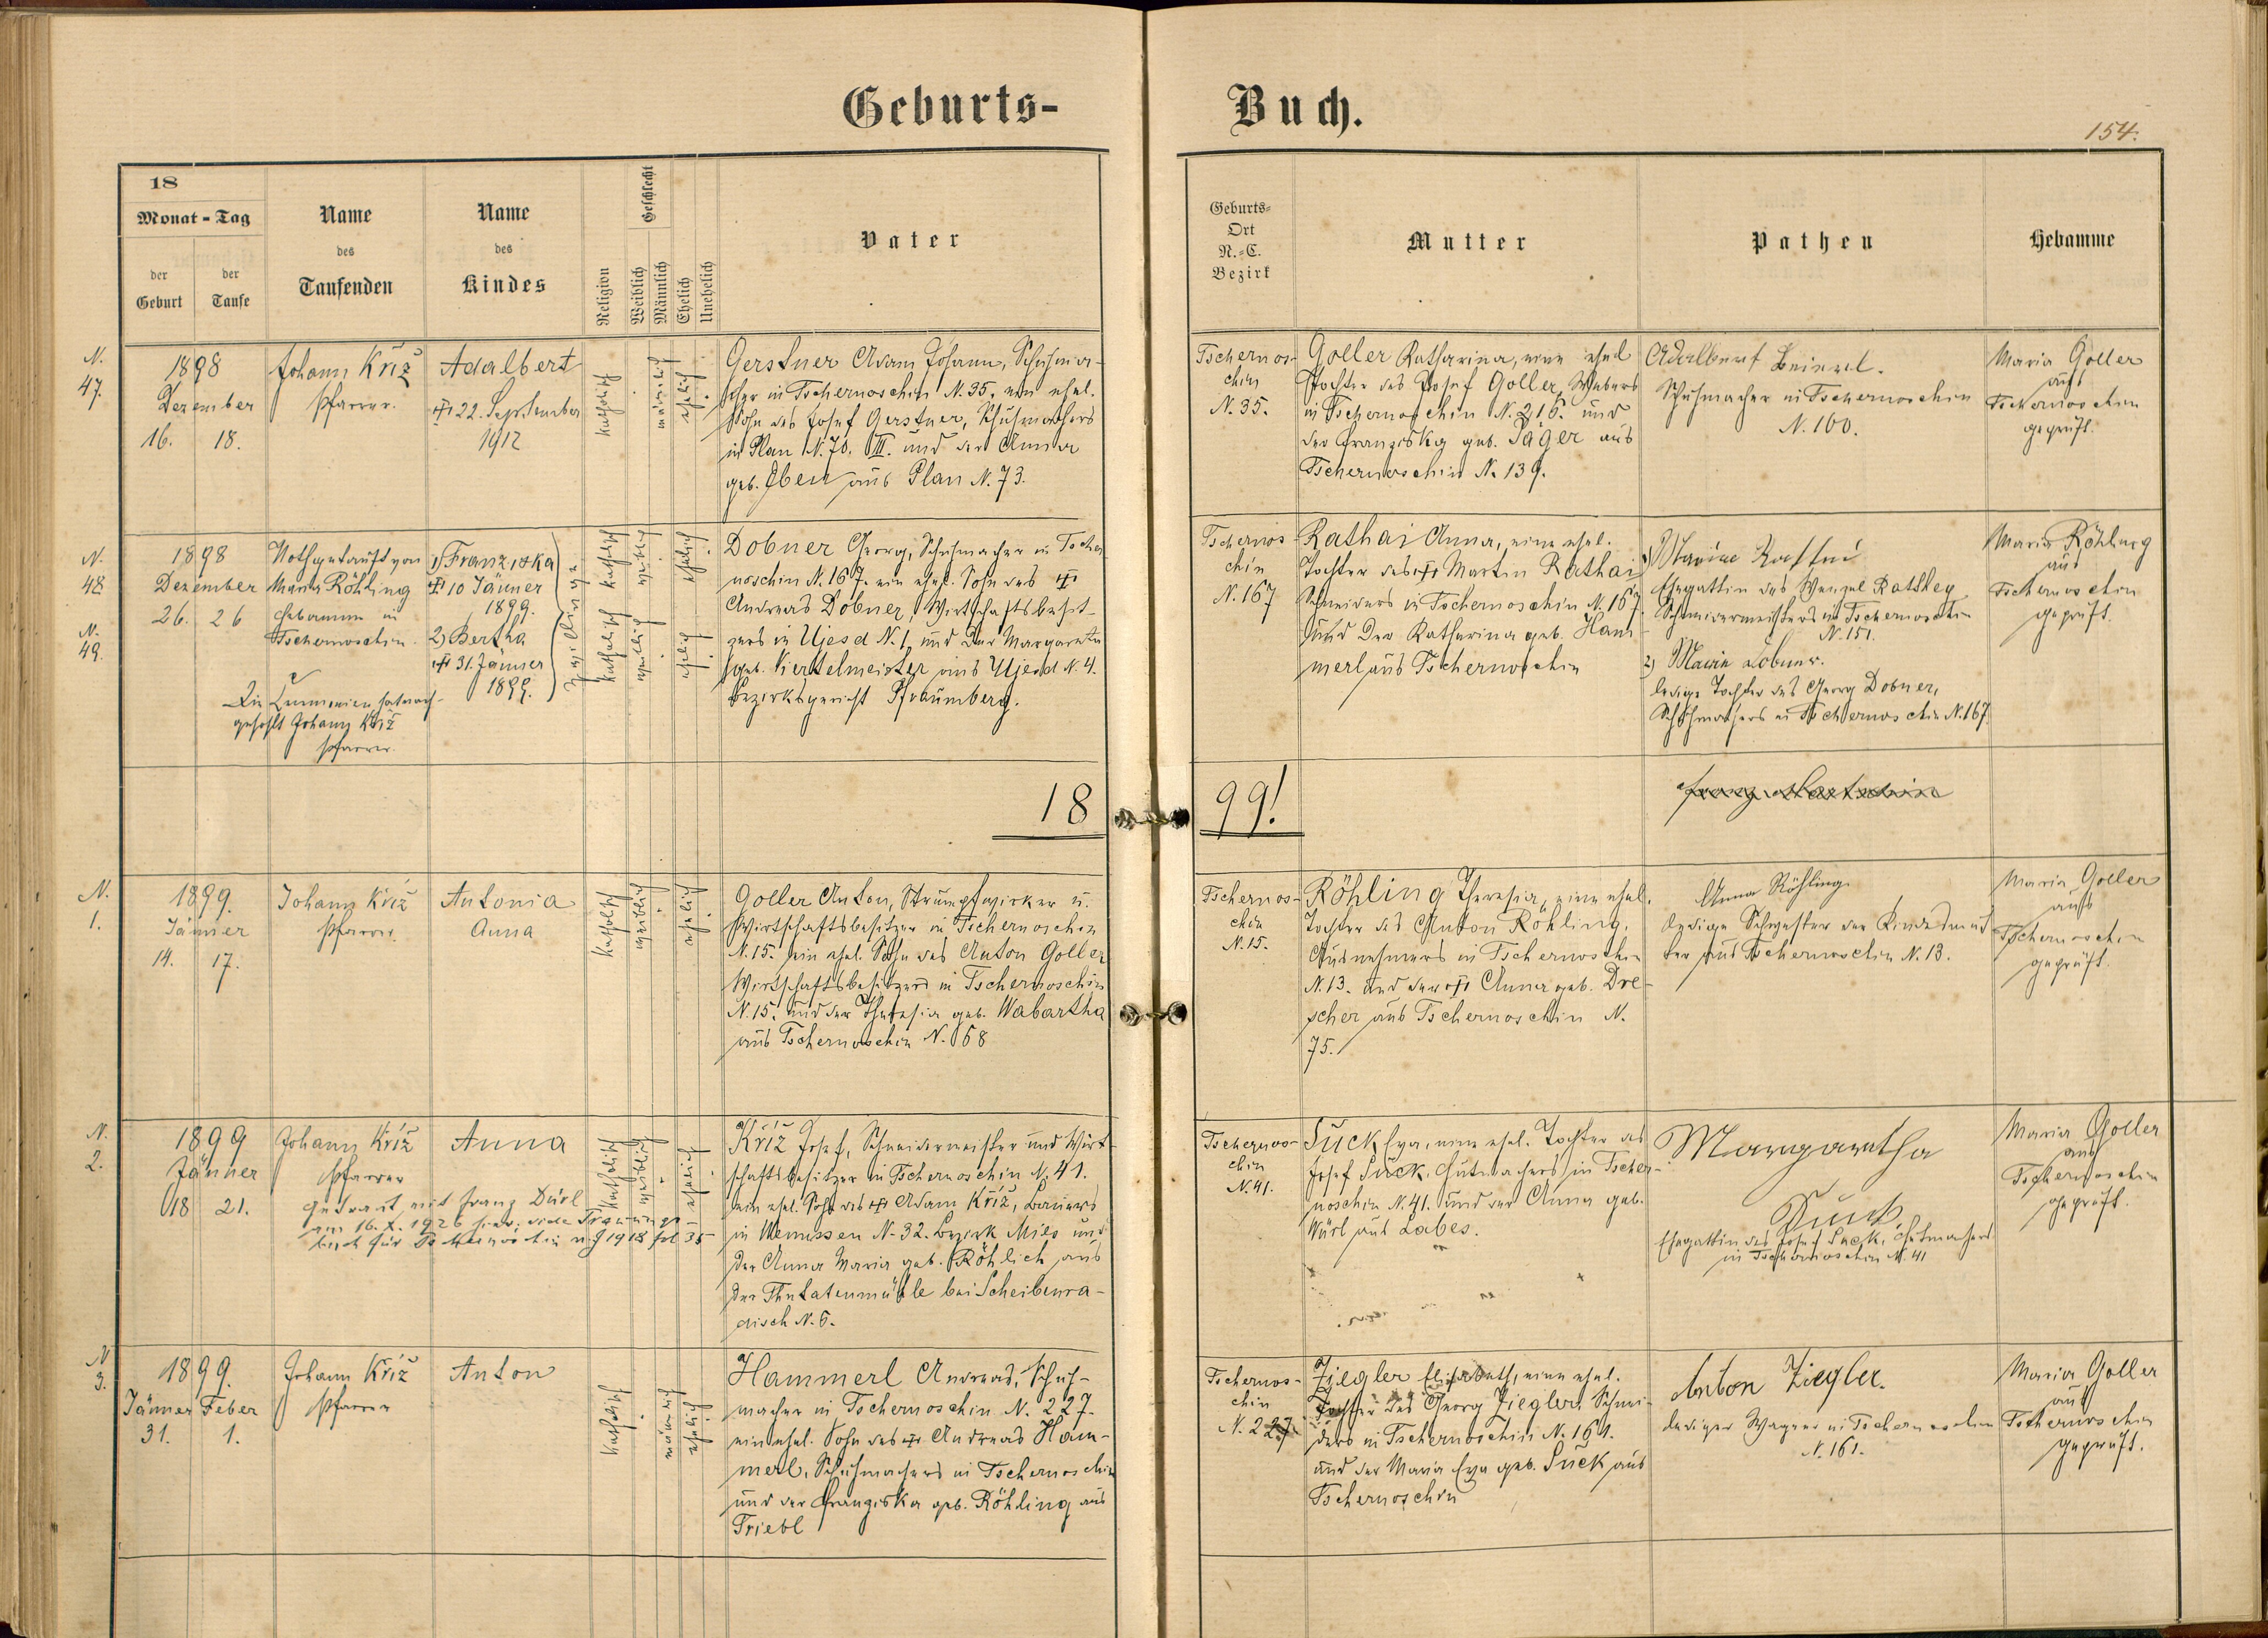 Geburts-
Buch.
154.
18
Monat - Tag
der
Geburt
der
Taufe
Name
des
Taufenden
Name
des
Kindes
Religion
Geschlecht
Weiblich
Männlich
Ehelich
Unehelich
Vater
Geburts-
Ort
N.-C.
Bezirk
Mutter
Pathen
Hebamme
N.
47.
1898
Dezember
16. 18.
Johann Kříž
Pfarrer.
Adalbert
22. September
1912
katholisch
männlich
ehelich
Gerstner Adam Johann, Schuhma-
cher in Tschernoschin N. 35. ein ehel.
Sohn des Josef Gerstner, Schuhmachers
in Plan N. 70. III. und der Anna
geb. Eben aus Plan N. 73.
Tschernos-
chin
N. 35.
Goller Katharina, eine ehel
Tochter des Josef Goller, Webers
in Tschernoschin N. 216. und
der Franziska geb. Jäger aus
Tschernoschin N. 139.
Adalbert Beierl.
Schuhmacher in Tschernoschin
N. 100.
Maria Goller
aus
Tschernoschin
geprüft.
N.
48
N.
49.
1898
Dezember
26. 26
Nothgetauft von
Maria Röhling
Hebamme in
Tschernoschin.
Die Ceremonien hat nach-
geholt Johann Kříž
Pfarrer.
1) Franziska
10 Jänner
1899.
2) Bertha
31. Jänner
1899.
Zwillinge
katholisch katholisch
weiblich weiblich
ehelich ehelich
Dobner Georg, Schuhmacher in Tscher
noschin N. 167. ein ehel. Sohn des
Andreas Dobner, Wirtschaftsbesit-
zers in Ujesd N. 1, und der Margaretha
geb. Viertelmeister aus Ujesd N. 4.
Bezirksgericht Pfraumberg.
Tschernos
chin
N. 167
Rathai Anna, eine ehel.
Tochter des Martin Rathai
Schneiders in Tschernoschin N. 167
und der Katharina geb. Ham-
merl aus Tschernoschin
1)
Ehegattin des Wenzel Rathey
Schneidermeisters in Tschernoschin
N. 151.
2) Maria Dobner.
ledige Tochter des Georg Dobner,
Schuhmachers in Tschernoschin N. 167.
Maria Röhling
aus
Tschernoschin
geprüft.
18
99!
N.
1.
1899.
Jänner
14. 17.
Johann Kříž
Pfarrer.
Antonia
Anna
katholisch
weiblich
ehelich
Goller Anton, Strumpfwirker u.
Wirtschaftsbesitzer in Tschernoschin
N. 15. ein ehel. Sohn des Anton Goller
Wirtschaftsbesitzers in Tschernoschin
N. 15. und der Theresia geb. Wabartha
aus Tschernoschin N. 58
Tschernos-
chin
N. 15.
Röhling Theresia, eine ehel.
Tochter des Anton Röhling,
Ausnehmers in Tschernoschin
N. 13. und der Anna geb. Dre-
scher aus Tschernoschin N.
75.
Anna Röhling.
ledige Schwester der Kindesmut
ter aus Tschernoschin N. 13.
Maria Goller
aus
Tschernoschin
geprüft.
N.
2.
1899
Jänner
18 21.
Johann Kříž
Pfarrer
getraut mit Franz Dürl
am 16. X. 1926 hier; vide Trauungs
buch für Tschernoschin 1918 fol 35
Anna
katholisch
weiblich
ehelich
Kříž Josef, Schneidermeister und Wirt-
schaftsbesitzer in Tschernoschin N. 41.
ein ehel. Sohn des Adam Kříž, Bauers
in Wenussen N. 32. Bezirk Mies und
der Anna Maria geb. Röhlich aus
der Thutatenmühle bei Scheibenra-
disch N. 6.
Tschernos-
chin
N. 41.
Suck Eva, eine ehel. Tochter des
Josef Suck, Hutmachers in Tscher-
noschin N. 41. und der Anna geb.
Würl aus Labes.
Margaretha
Suck
Ehegattin des Josef Suck, Hutmachers
in Tschernoschin N. 41
Maria Goller
aus
Tschernoschin
geprüft.
N
3.
1899.
Jänner Feber
31. 1.
Johann Kříž
Pfarrer
Anton
katholisch
männlich
ehelich
Hammerl Andreas, Schuh-
macher in Tschernoschin N. 227.
ein ehel. Sohn des Andreas Ham-
merl, Schuhmachers in Tschernoschin
und der Franziska geb. Röhling aus
Triebl
Tschernos-
chin
N. 227
Ziegler Elisabeth, eine ehel.
Tochter des Georg Ziegler, Schnei-
ders in Tschernoschin N. 161.
und der Maria Eva geb. Suck aus
Tschernoschin
Anton Ziegler.
lediger Wagner in Tschernoschin
N. 161.
Maria Goller
aus
Tschernoschin
geprüft.